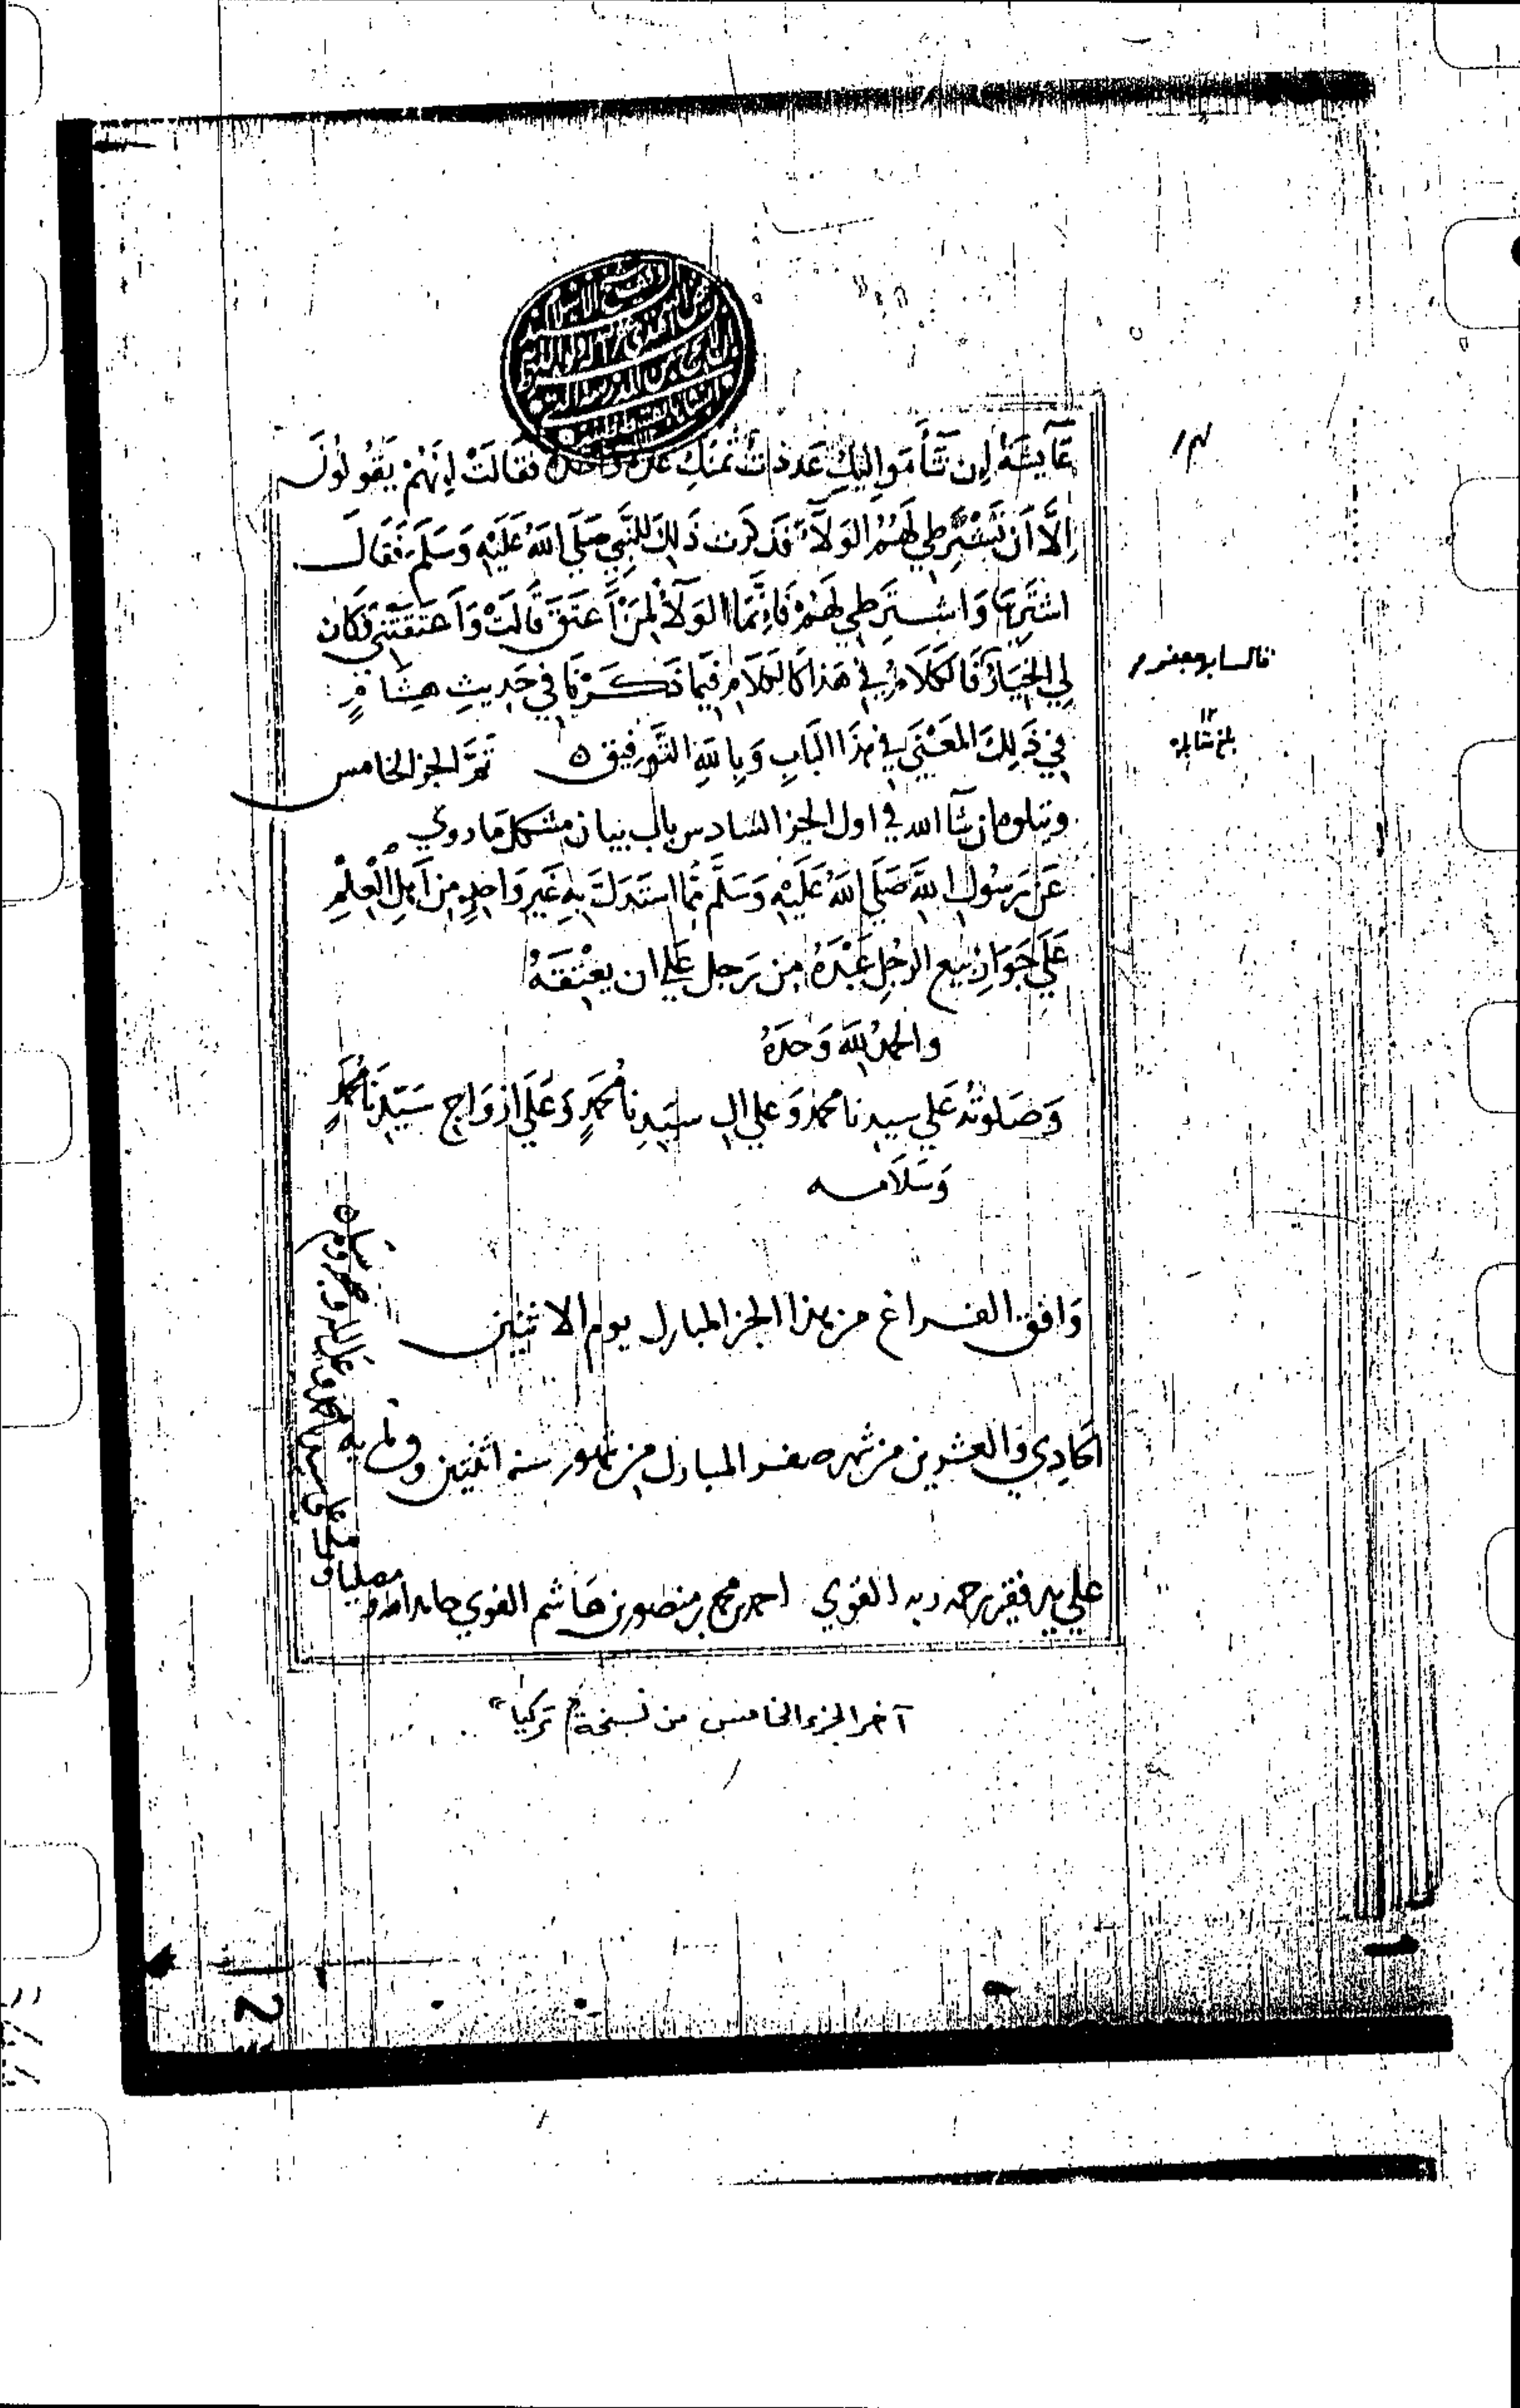 عَآيشَةُ إن شَآءَ مَوَاليكِ عَدَدتُ ثَمَنَكِ عَدَّةً وَاحدَةً فقَالَتْ إنَهُمْ يَقُولُونَ
إلَّا أَن تَشْتَرِطِي لَهُمُ الوَلَآءَ فَذَكَرَت ذَلِكَ للنَّبِي صَلَّي اللهُ عَلَيْهِ وَسَلَم فَقَالَ
اشتَرِيهَا وَاشْتَرِطِي لَهُمْ فَإنَّمَا الوَلَآءُ لِمَنْ أَعتَقَ قَالَتْ وَأَعتَقَتْنِي فَكَان
لِي الخِيَارُ فَالكَلَامُ فِي هَذَا كَالكَلَامِ فِيمَا ذَكَرْنَا في حَدِيثِ هِشَامٍ
في ذَلِكَ المَعْنَي في هَذَا البَابِ وَبِاللهِ التَّوفيق ه تَمَّ الجز الخامس
ويتلوه ان شآ الله في اول الجز السادس باب بيان مشكل ما روي
عَن رَسُول اللهِ صَلَي اللهُ عَلَيْهِ وَسَلَّم مما استَدَلَّ بِهِ غَير وَاحِدٍ مِن أَهلِ الْعِلْمِ
عَلَي جَوَازِ بَيع الرجُلِ عَبْدَهُ مِن رَجل عَلي ان يعْتقَهُ
والحمدُ للهِ وَحدَهُ
وَصَلوتُه عَلي سيدنا محمد وَعلي ال سَيدِنا مُحَمَدٍ وَعَلَي ازوَاج سَيّدِنَا مُحَمَدٍ
وَسَلَامه
وَافق الفراغ من هذا الجز المبارك يوم الاثنين
الحَادِي وَالعشرين من شهر صفر المبارك من شهور سنه اثنتين
علي يد فقير رحمه ربه القوي احمد بن محمد بن منصور بن هَاشم الفوي حامدا لله
ومصليا
قال ابو جعفر
بلغ مقابله
آخر الجزء الخامس من نسخة تركيا
2